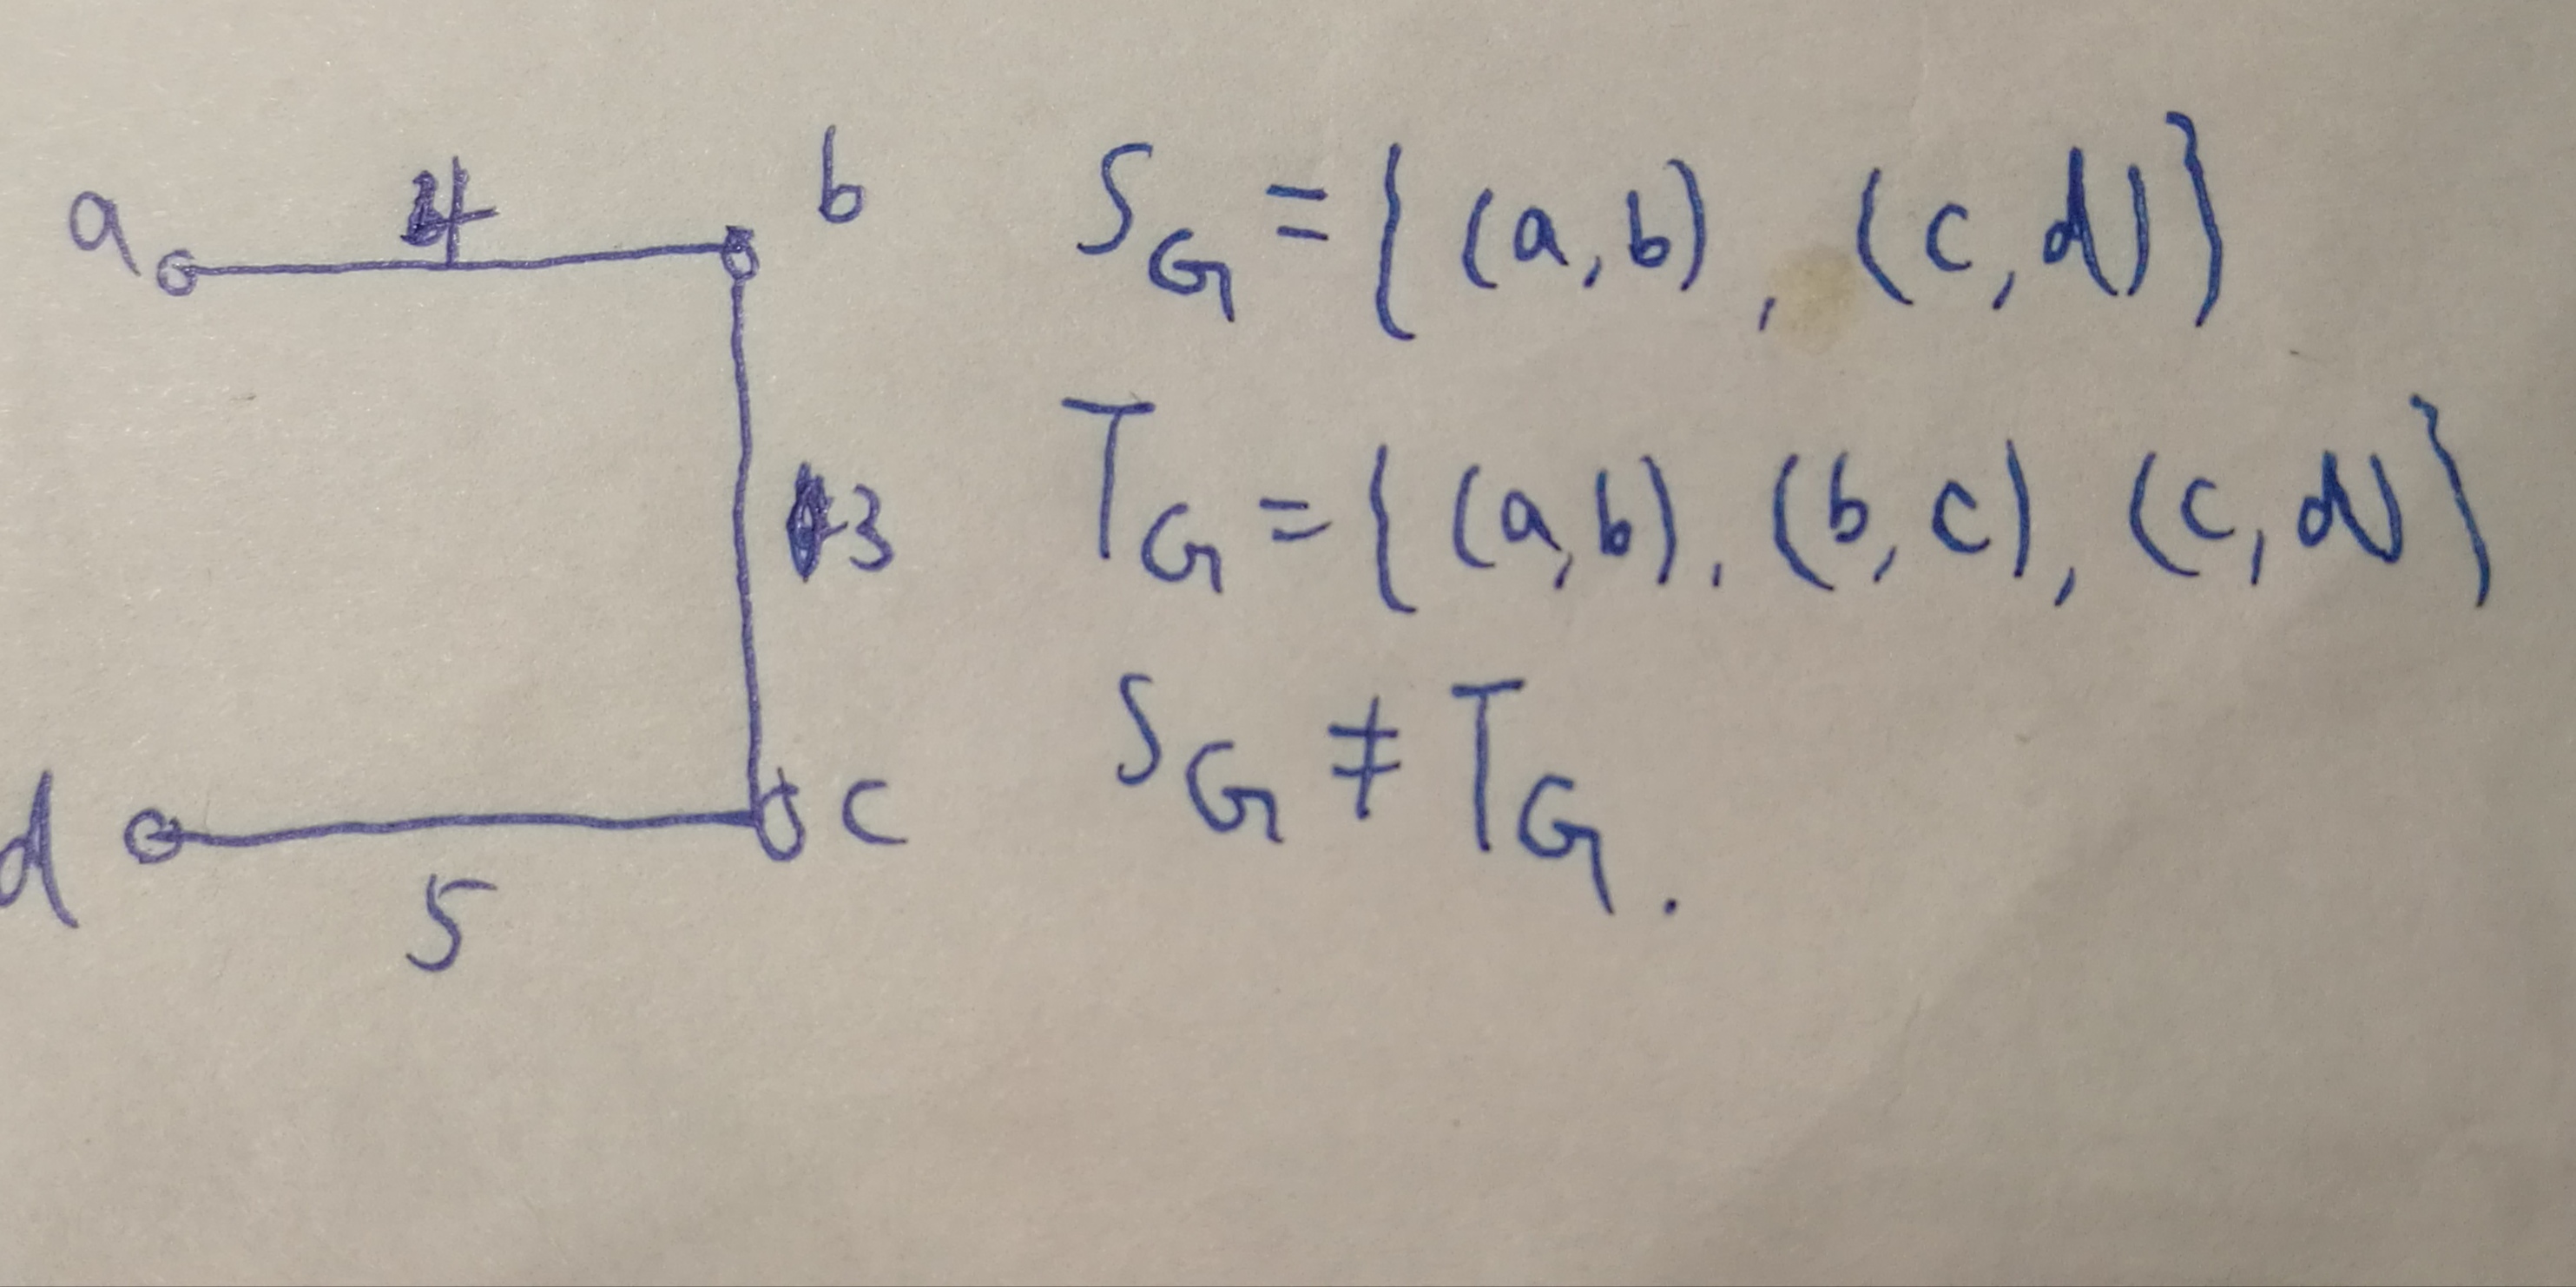 a 4 b
3
d c
5
S_G = { (a,b), (c,d) }
T_G = { (a,b), (b,c), (c,d) }
S_G ≠ T_G.